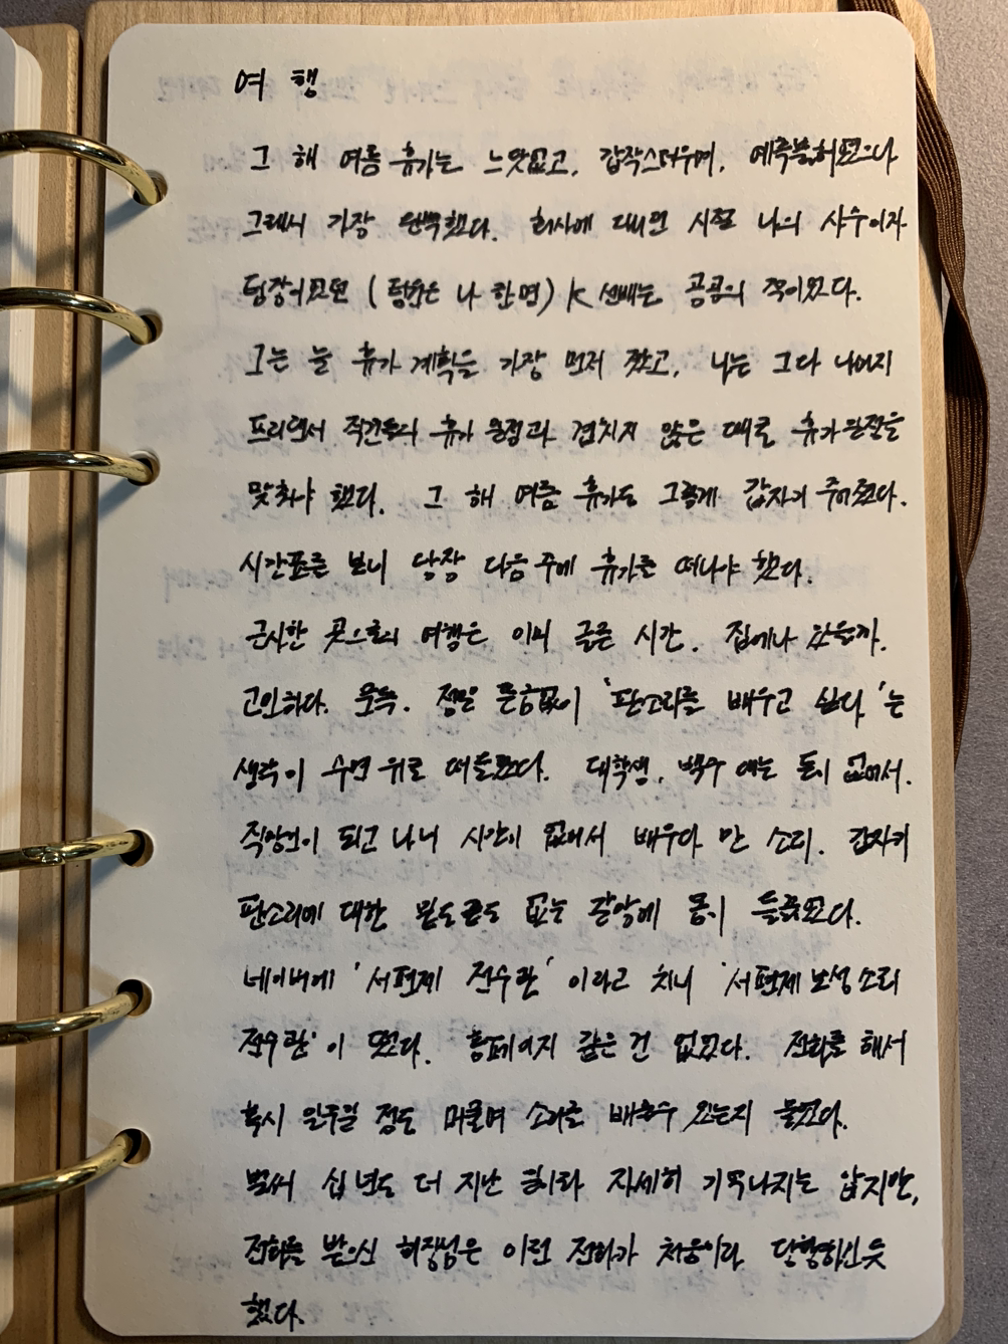 여행
그 해 여름 휴가는 느닷없고, 갑작스러우며, 예측불허였으나
그래서 가장 완벽했다. 회사에 다니던 시절 나의 사수이자
팀장이었던 (팀원은 나 한 명) K 선배는 공공의 적이었다.
그는 늘 휴가 계획을 가장 먼저 짰고, 나는 그와 나머지
프리랜서 직원들의 휴가 일정과 겹치지 않은 때로 휴가 일정을
맞춰야 했다. 그 해 여름 휴가도 그렇게 갑자기 주어졌다.
시간표를 보니 당장 다음 주에 휴가를 떠나야 했다.
근사한 곳으로의 여행은 이미 글른 시간. 집에나 있을까.
고민하다. 문득. 정말 뜬금없이 '판소리를 배우고 싶다'는
생각이 수면 위로 떠올랐다. 대학생, 백수 때는 돈이 없어서.
직장인이 되고 나니 시간이 없어서 배우다 만 소리. 갑자기
판소리에 대한 밑도 끝도 없는 갈망에 몸이 들끓었다.
네이버에 '서편제 전수관'이라고 치니 '서편제 보성소리
전수관'이 떴다. 홈페이지 같은 건 없었다. 전화를 해서
혹시 일주일 정도 머물며 소리를 배울 수 있는지 물었다.
벌써 십 년도 더 지난 일이라 자세히 기억나지는 않지만,
전화를 받으신 회장님은 이런 전화가 처음이라 당황하신 듯
했다.